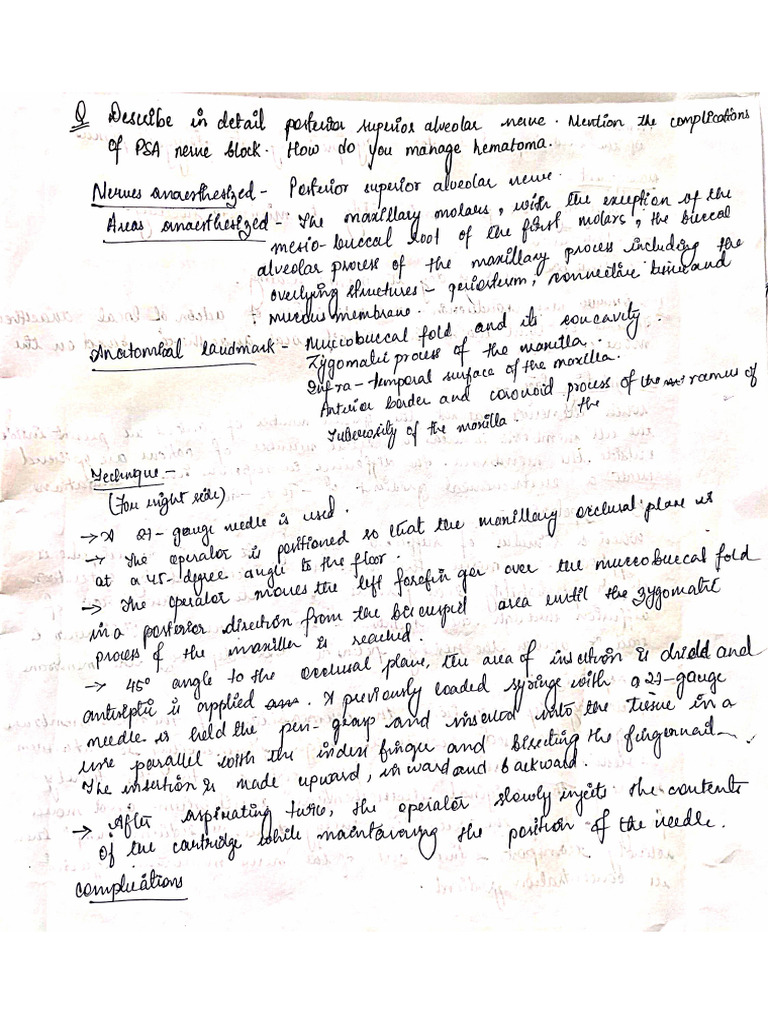 Q Describe in detail posterior superior alveolar nerve. Mention the complications
of PSA nerve block. How do you manage hematoma.
Nerves anaesthesized - Posterior superior alveolar nerve.
Areas anaesthesized - The maxillary molars, with the exception of the
mesio-buccal root of the first molars, the buccal
alveolar process of the maxillary process including the
overlying structures - periosteum, connective tissue and
mucous membrane.
Anatomical landmark - Mucobuccal fold and its concavity.
Zygomatic process of the maxilla.
Infra-temporal surface of the maxilla.
Anterior border and coronoid process of the ramus of
the
Tuberosity of the maxilla.
Technique -
(For right side)
→ A 27-gauge needle is used.
→ The operator is positioned so that the maxillary occlusal plane is
at a 45-degree angle to the floor.
→ The operator moves the left forefinger over the muccobuccal fold
in a posterior direction from the bicuspid area until the zygomatic
process of the maxiller is reached.
→ 45° angle to the occlusal plane, the area of insertion is dried and
antiseptic is applied. A previously loaded syringe with a 27-gauge
needle is held the pen-grasp and inserted into the tissue in a
line parallel with the index finger and bisecting the fingernail.
The insertion is made upward, inward and backward.
→ After aspirating twice, the operator slowly injects the contents
of the cartridge while maintaining the position of the needle.
Complications